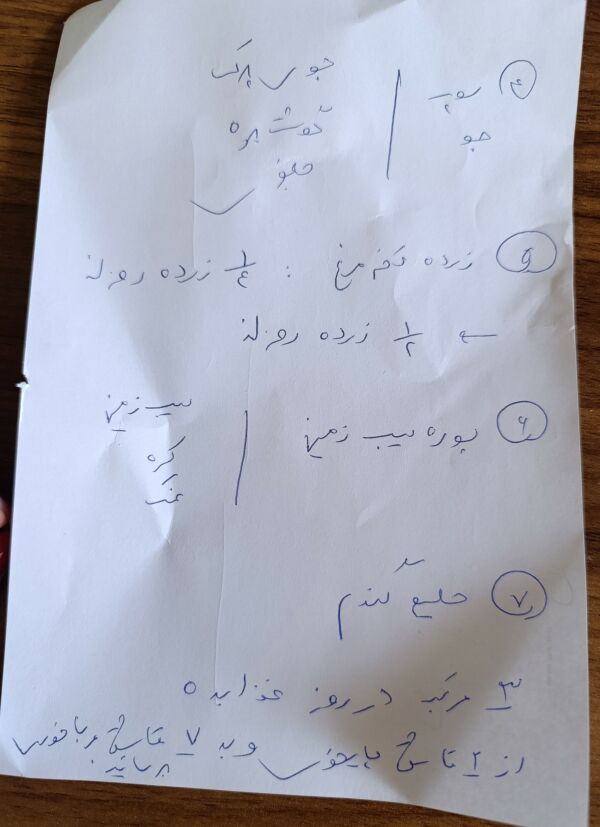 ۴ سوپ جو
جو پرک
گوشت بره
۵ زرده تخم مرغ : ۱/۴ زرده روزانه
← ۱/۲ زرده روزانه
۶ پوره سیب زمینی
سیب زمینی
کره
نمک
۷ حلیم گندم
۳ مرتبه در روز غذا بده
از ۲ قاشق چایخوری و به ۷ قاشق مرباخوری
برسانید